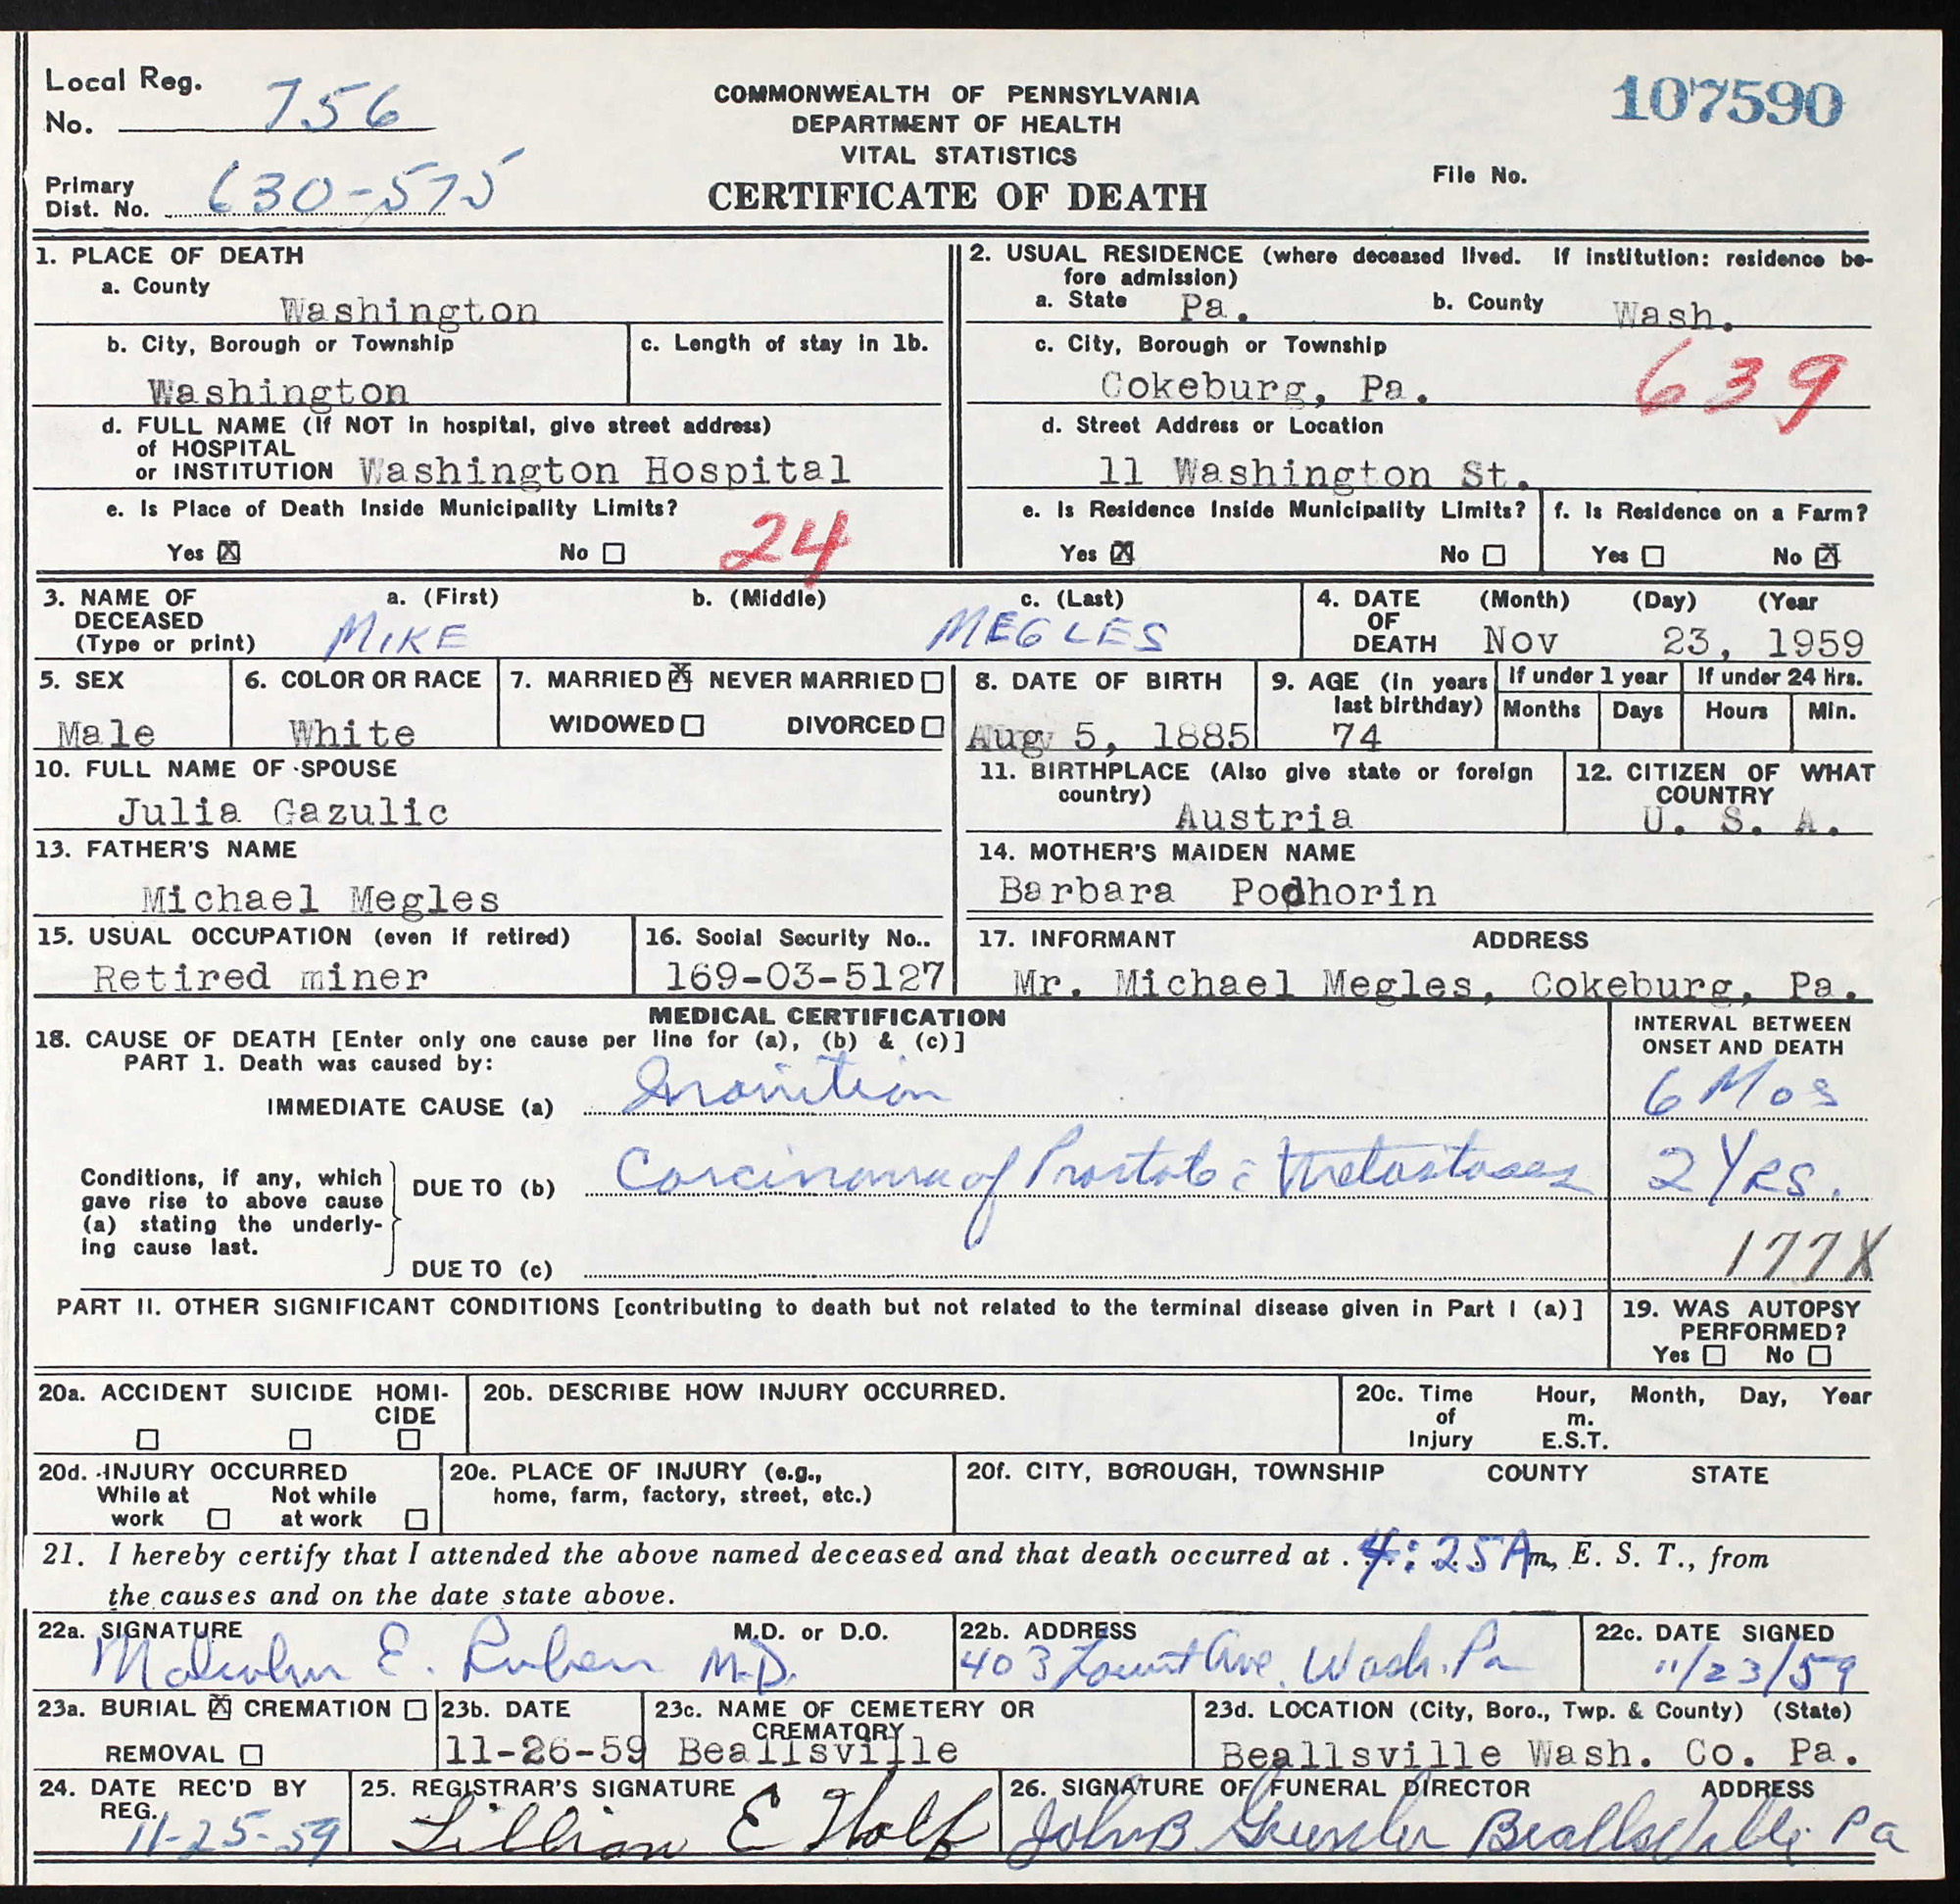 Local Reg.
No. 756
107590
COMMONWEALTH OF PENNSYLVANIA
DEPARTMENT OF HEALTH
VITAL STATISTICS
CERTIFICATE OF DEATH
File No.
Primary
Dist. No. 630-575
1. PLACE OF DEATH
a. County
Washington
b. City, Borough or Township
Washington
c. Length of stay in 1b.
d. FULL NAME (If NOT in hospital, give street address)
of HOSPITAL
or INSTITUTION Washington Hospital
e. Is Place of Death Inside Municipality Limits?
Yes ☒ No ☐
24
2. USUAL RESIDENCE (where deceased lived. If institution: residence be-
fore admission)
a. State Pa. b. County Wash.
c. City, Borough or Township
Cokeburg, Pa.
639
d. Street Address or Location
11 Washington St.
e. Is Residence Inside Municipality Limits?
Yes ☒ No ☐
f. Is Residence on a Farm?
Yes ☐ No ☒
3. NAME OF DECEASED
(Type or print)
a. (First) b. (Middle) c. (Last)
MIKE MEGLES
4. DATE OF DEATH
(Month) (Day) (Year
Nov 23, 1959
5. SEX
Male
6. COLOR OR RACE
White
7. MARRIED ☒ NEVER MARRIED ☐
WIDOWED ☐ DIVORCED ☐
8. DATE OF BIRTH
Aug 5, 1885
9. AGE (in years
last birthday)
74
If under 1 year
Months Days
If under 24 hrs.
Hours Min.
10. FULL NAME OF SPOUSE
Julia Gazulic
11. BIRTHPLACE (Also give state or foreign
country)
Austria
12. CITIZEN OF WHAT
COUNTRY
U. S. A.
13. FATHER'S NAME
Michael Megles
14. MOTHER'S MAIDEN NAME
Barbara Podhorin
15. USUAL OCCUPATION (even if retired)
Retired miner
16. Social Security No..
169-03-5127
17. INFORMANT ADDRESS
Mr. Michael Megles, Cokeburg, Pa.
MEDICAL CERTIFICATION
18. CAUSE OF DEATH [Enter only one cause per line for (a), (b) & (c)]
PART 1. Death was caused by:
INTERVAL BETWEEN
ONSET AND DEATH
IMMEDIATE CAUSE (a) Inanition 6 Mos
Conditions, if any, which
gave rise to above cause
(a) stating the underly-
ing cause last.
DUE TO (b) Carcinoma of Prostate c̄ Metastases 2 YRS.
DUE TO (c)
177X
PART II. OTHER SIGNIFICANT CONDITIONS [contributing to death but not related to the terminal disease given in Part I (a)]
19. WAS AUTOPSY
PERFORMED?
Yes ☐ No ☐
20a. ACCIDENT SUICIDE HOMI-
CIDE
☐ ☐ ☐
20b. DESCRIBE HOW INJURY OCCURRED.
20c. Time
of
Injury
Hour, Month, Day, Year
m.
E.S.T.
20d. INJURY OCCURRED
While at
work ☐
Not while
at work ☐
20e. PLACE OF INJURY (e.g.,
home, farm, factory, street, etc.)
20f. CITY, BOROUGH, TOWNSHIP COUNTY STATE
21. I hereby certify that I attended the above named deceased and that death occurred at 4:25 A m, E. S. T., from
the causes and on the date state above.
22a. SIGNATURE M.D. or D.O.
Malcolm E. Ruben M.D.
22b. ADDRESS
403 Locust Ave. Wash. Pa
22c. DATE SIGNED
11/23/59
23a. BURIAL ☒ CREMATION ☐
REMOVAL ☐
23b. DATE
11-26-59
23c. NAME OF CEMETERY OR
CREMATORY
Beallsville
23d. LOCATION (City, Boro., Twp. & County) (State)
Beallsville Wash. Co. Pa.
24. DATE REC'D BY
REG.
11-25-59
25. REGISTRAR'S SIGNATURE
Lillian E
26. SIGNATURE OF FUNERAL DIRECTOR ADDRESS
John B Beallsville Pa